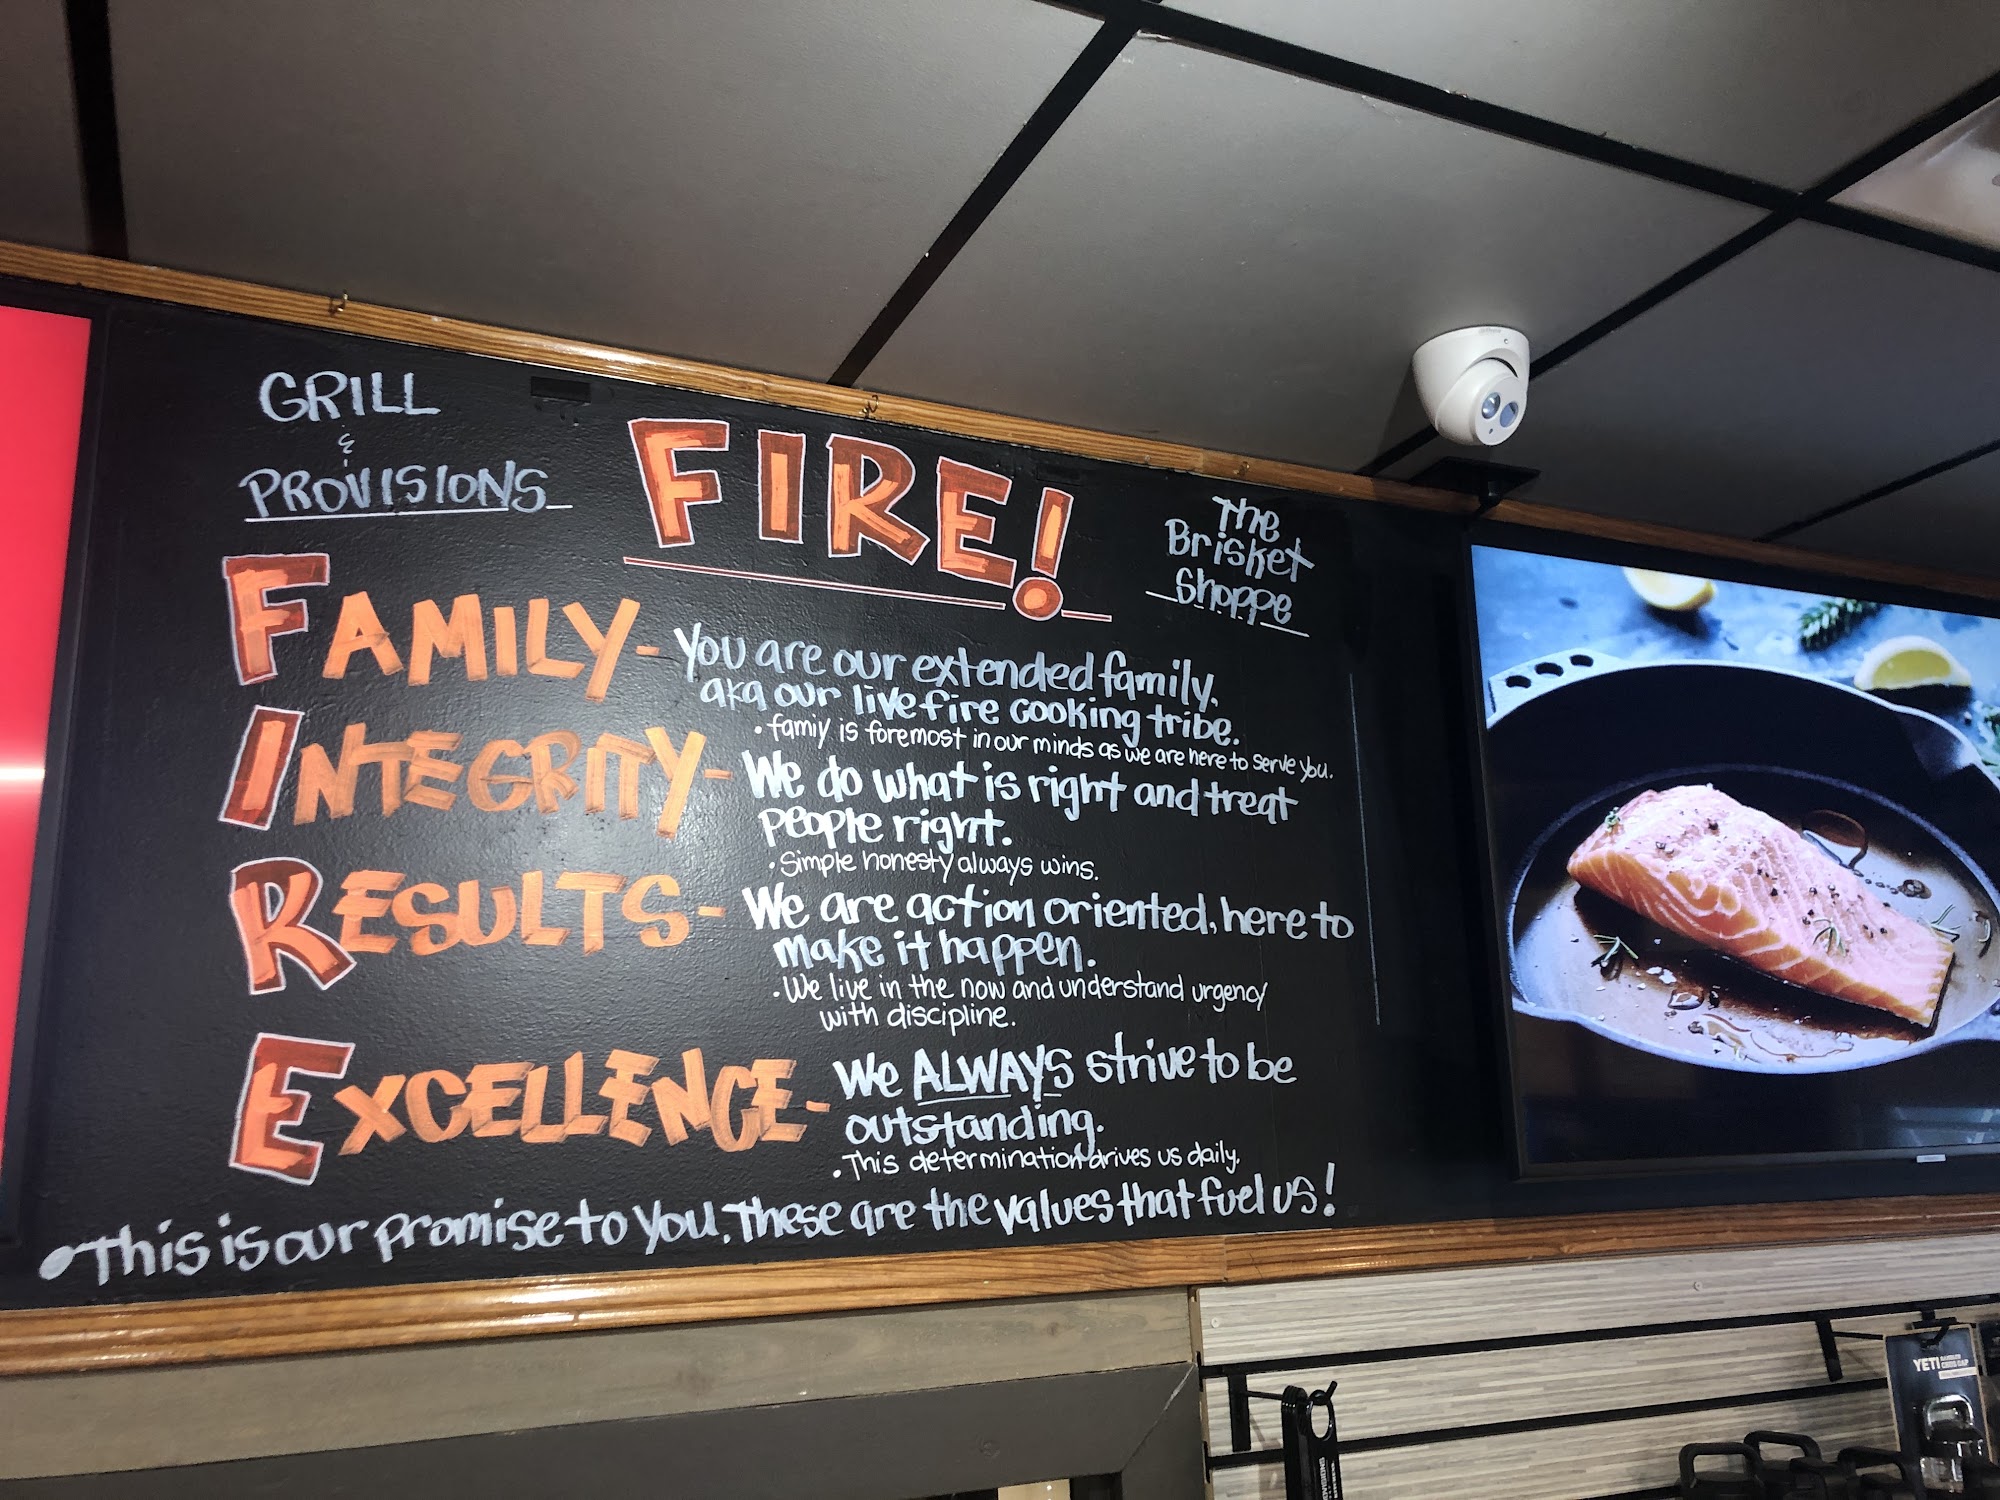 GRILL
&
PROVISIONS
FIRE!
The
Brisket
Shoppe
FAMILY - You are our extended family,
aka our live fire cooking tribe.
• famiy is foremost in our minds as we are here to serve you.
INTEGRITY - We do what is right and treat
people right.
• Simple honesty always wins.
RESULTS - We are action oriented, here to
make it happen.
• We live in the now and understand urgency
with discipline.
EXCELLENCE - We ALWAYS strive to be
outstanding.
• This determination drives us daily.
• This is our promise to you. These are the values that fuel us!
YETI RAMBLER
CHUG CAP